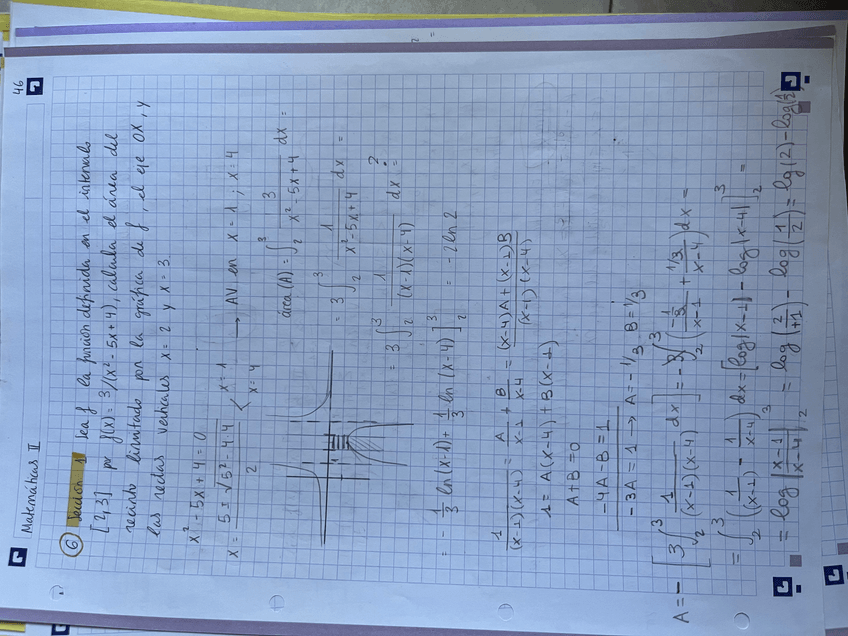 Matemáticas II
46
6 Sección 1 Sea f la función definida en el intervalo
[2,3] por f(x) = 3/(x²-5x+4), calcula el área del
recinto limitado por la gráfica de f, el eje OX, y
las rectas verticales x = 2 y x = 3
x² - 5x + 4 = 0
x = (5 ± √(5² - 4·4))/2 < x = 1 x = 4 → AV en x = 1 ; x = 4
área (A) = ∫₂³ 3/(x² - 5x + 4) dx =
= 3 ∫₂³ 1/(x² - 5x + 4) dx =
= 3 ∫₂³ 1/((x-1)(x-4)) dx ?=
= - 1/3 ln (x-1) + 1/3 ln (x-4) ]₂³ = -2 ln 2
1/((x-1)(x-4)) = A/(x-1) + B/(x-4) = ((x-4)A + (x-1)B)/((x-1)(x-4))
1 = A(x-4) + B(x-1)
A + B = 0
-4A - B = 1
-3A = 1 → A = -1/3 B = 1/3
A = - [ 3 ∫₂³ 1/((x-1)(x-4)) dx ] = - 3 ∫₂³ ( (-1/3)/(x-1) + (1/3)/(x-4) ) dx =
= ∫₂³ ( 1/(x-1) - 1/(x-4) ) dx = [ log|x-1| - log|x-4| ]₂³ =
= log |(x-1)/(x-4)| ]₂³ = log (2/+1) - log (1/2) = log(2) - log(1/2)